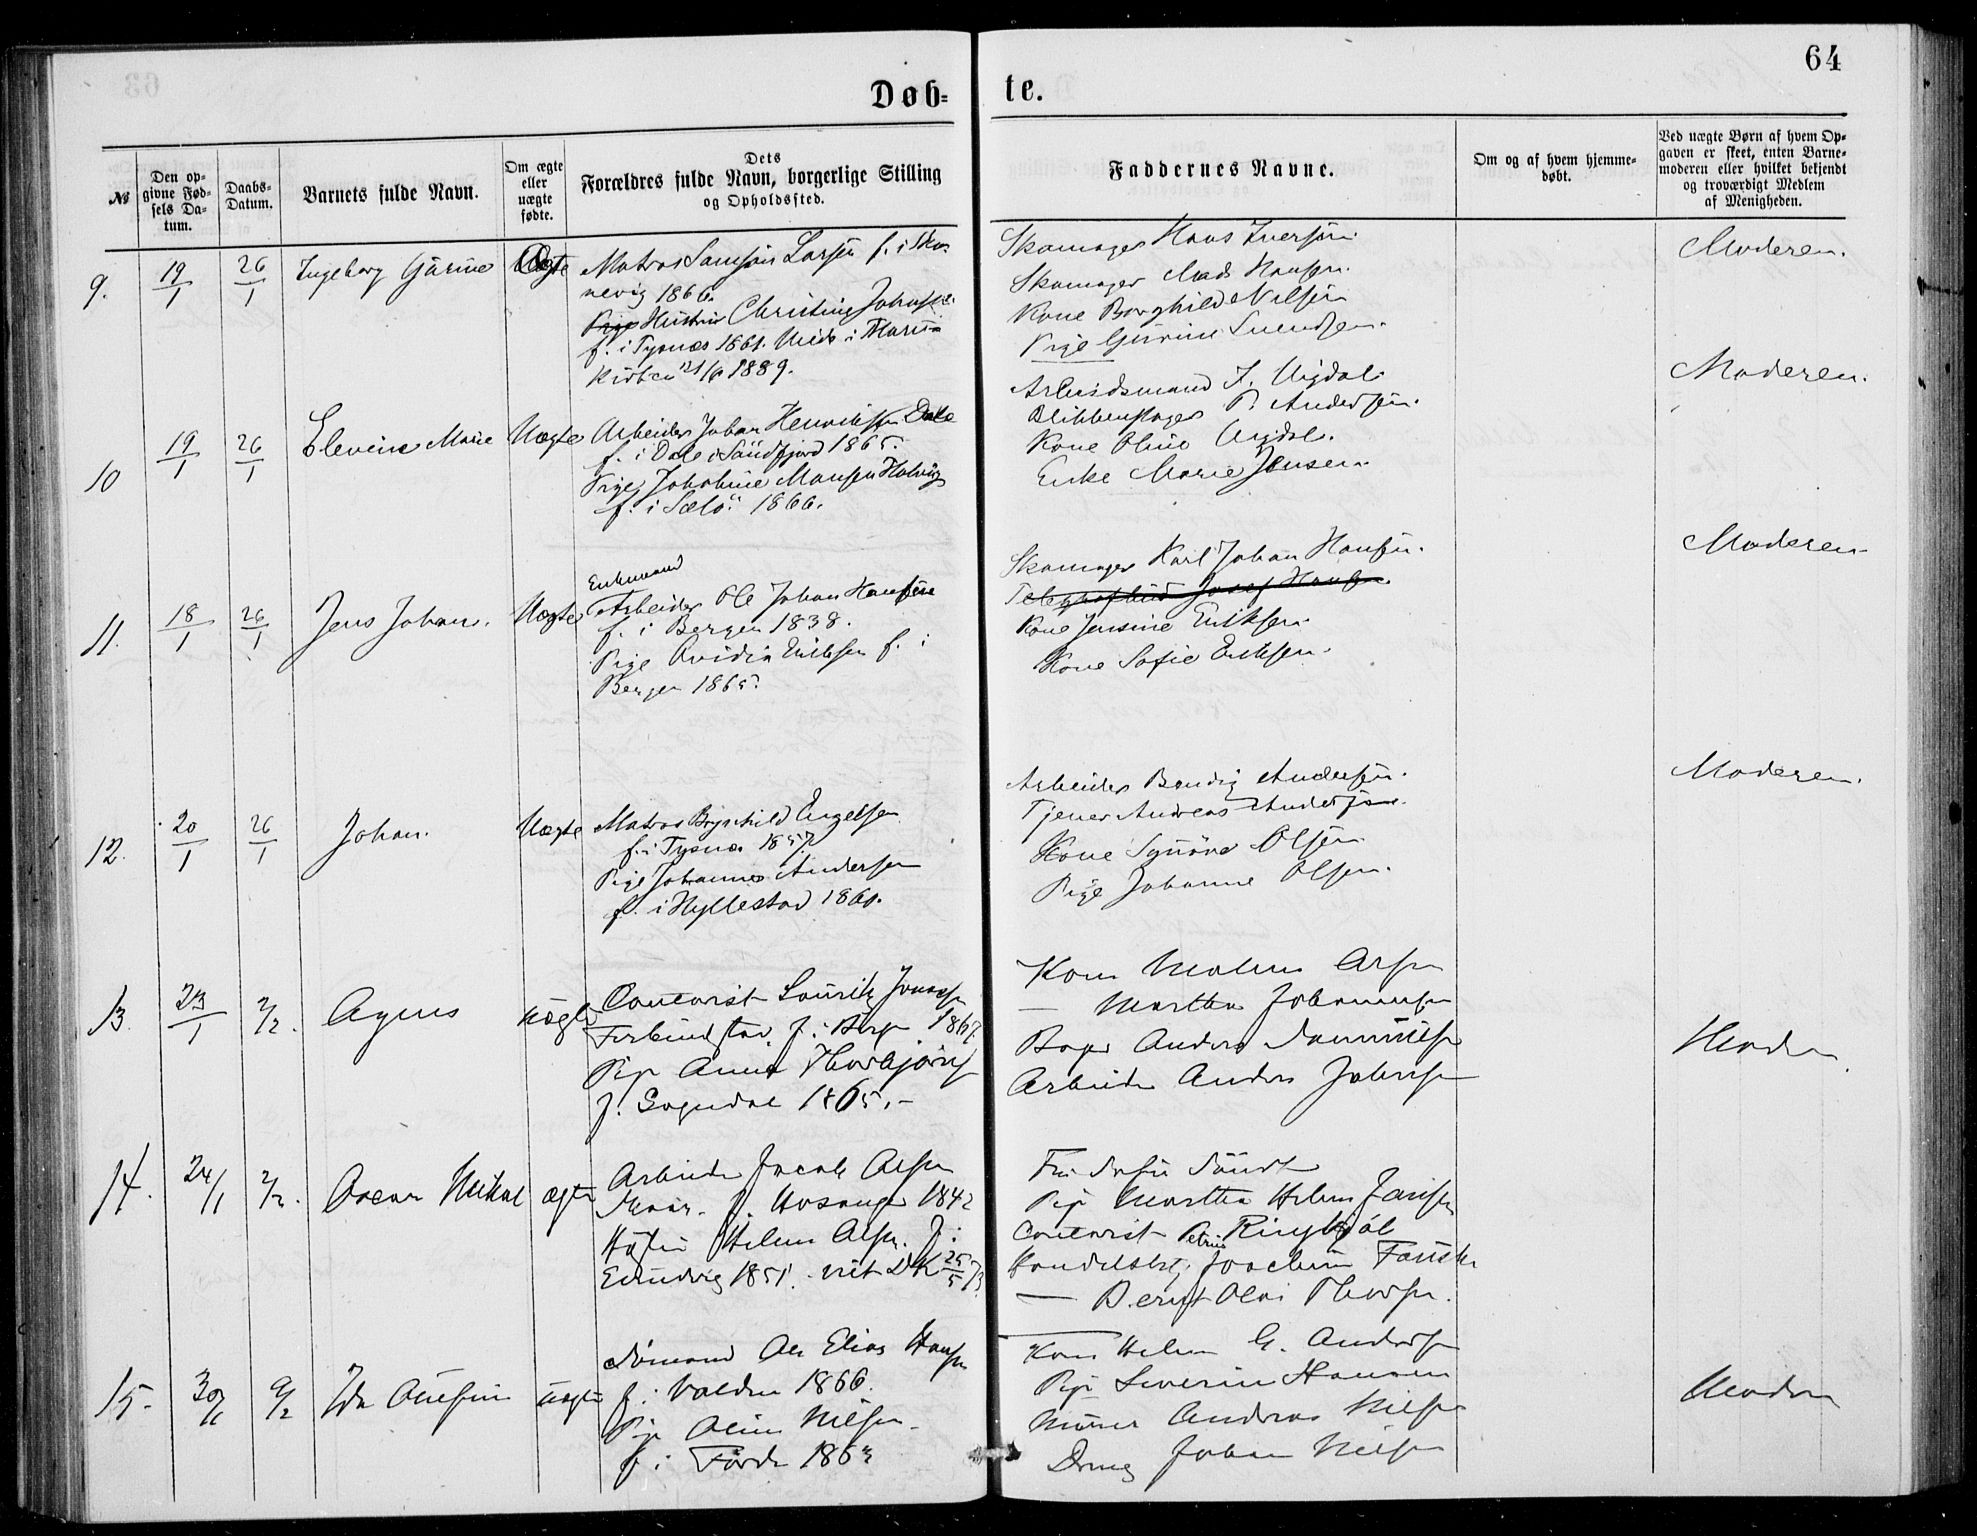 64
Døb-
te.
№
Den op-
givne Fød-
sels Da-
tum.
Daabs-
Datum.
Barnets fulde Navn.
Om ægte
eller
uægte
fødte.
Dets
Forældres fulde Navn, borgerlige Stilling
og Opholdssted.
Faddernes Navne.
Om og af hvem hjemme-
døbt.
Ved uægte Børn af hvem Op-
gaven er skeet, enten Barne-
moderen eller hvilket bekjendt
og troværdigt Medlem
af Menigheden.
9.
19/1
26/1
Ingeborg Gurine
Ægte
Matros Samson Larsen f. i Skaa-
nevig 1866.
Pige Hustru Christine Johnsen
f. i Tysnæs 1861. Viede i Maria-
kirken 1889.
Skomager Hans Iversen
Skomager Mads Hansen
Kone Borghild Nilsen
Pige Gurine Svendsen
Moderen.
10
19/1
26/1
Elevine Marie
Uægte
Arbeider Johan Henriksen Dale
f. i Dale i Söndfjord 1865.
Pige Johanne Monsen
f. i Sælö 1866.
Arbeidsmand J. Vigdal
Blikkenslager P. Andersen.
Kone Oline Vigdal.
Enke Marie Jensen
Moderen.
11.
18/1
26/1
Jens Johan.
Uægte
Enkemand
Arbeider Ole Johan Hansen
f. i Bergen 1838.
Pige Ovidia Eriksen f. i
Bergen 1865.
Skomager Karl Johan Hansen.
Telegrafbud Josef Hansen
Kone Jensine Eriksen
Kone Sofie Eriksen.
Moderen
12.
20/1
26/1
Johan.
Uægte
Matros Brynhild Engelsen
f. i Tysnæs 1857
Pige Johanne Andersen
f. i Hyllestad 1860.
Arbeider Bendig Andersen.
Tjener Andreas Andersen.
Kone Synöve Olsen
Pige Johanne Olsen.
Moderen.
13.
23/1
2/2.
Agnes
uægte
Contorist Lauritz Jonassen
f. i Bergen 1867.
Pige Anna Thorbjörnsen
f. Sogndal 1865.-
Kone Malene Olsen
— Martha Johannesen
Bager Anders Danielsen
Arbeider Anders Johnsen
Moderen
14.
24/1
2/2.
Oscar Mikal
ægte
Arbeider Jacob Olsen
f. Hosanger 1842
Hustru Helene Olsen f. i
Eivindvig 1851. viet DK 25/5 73
Pige Martha Helene
Contorist Petrus Ringkjöb
Handelsbetj. Joachim
— Bernt Olai Thorsen.
15.
30/1
9/2
Ida Oline
uægte
Sömand Ole Elias Hansen
f. i Volden 1866.
Pige Oline Nilsen
f. i Förde 1863
Kone Helene G. Andersen
Pige Severine Hansen
Murer Andreas Nilsen
Dreng Johan Nilsen
Moderen